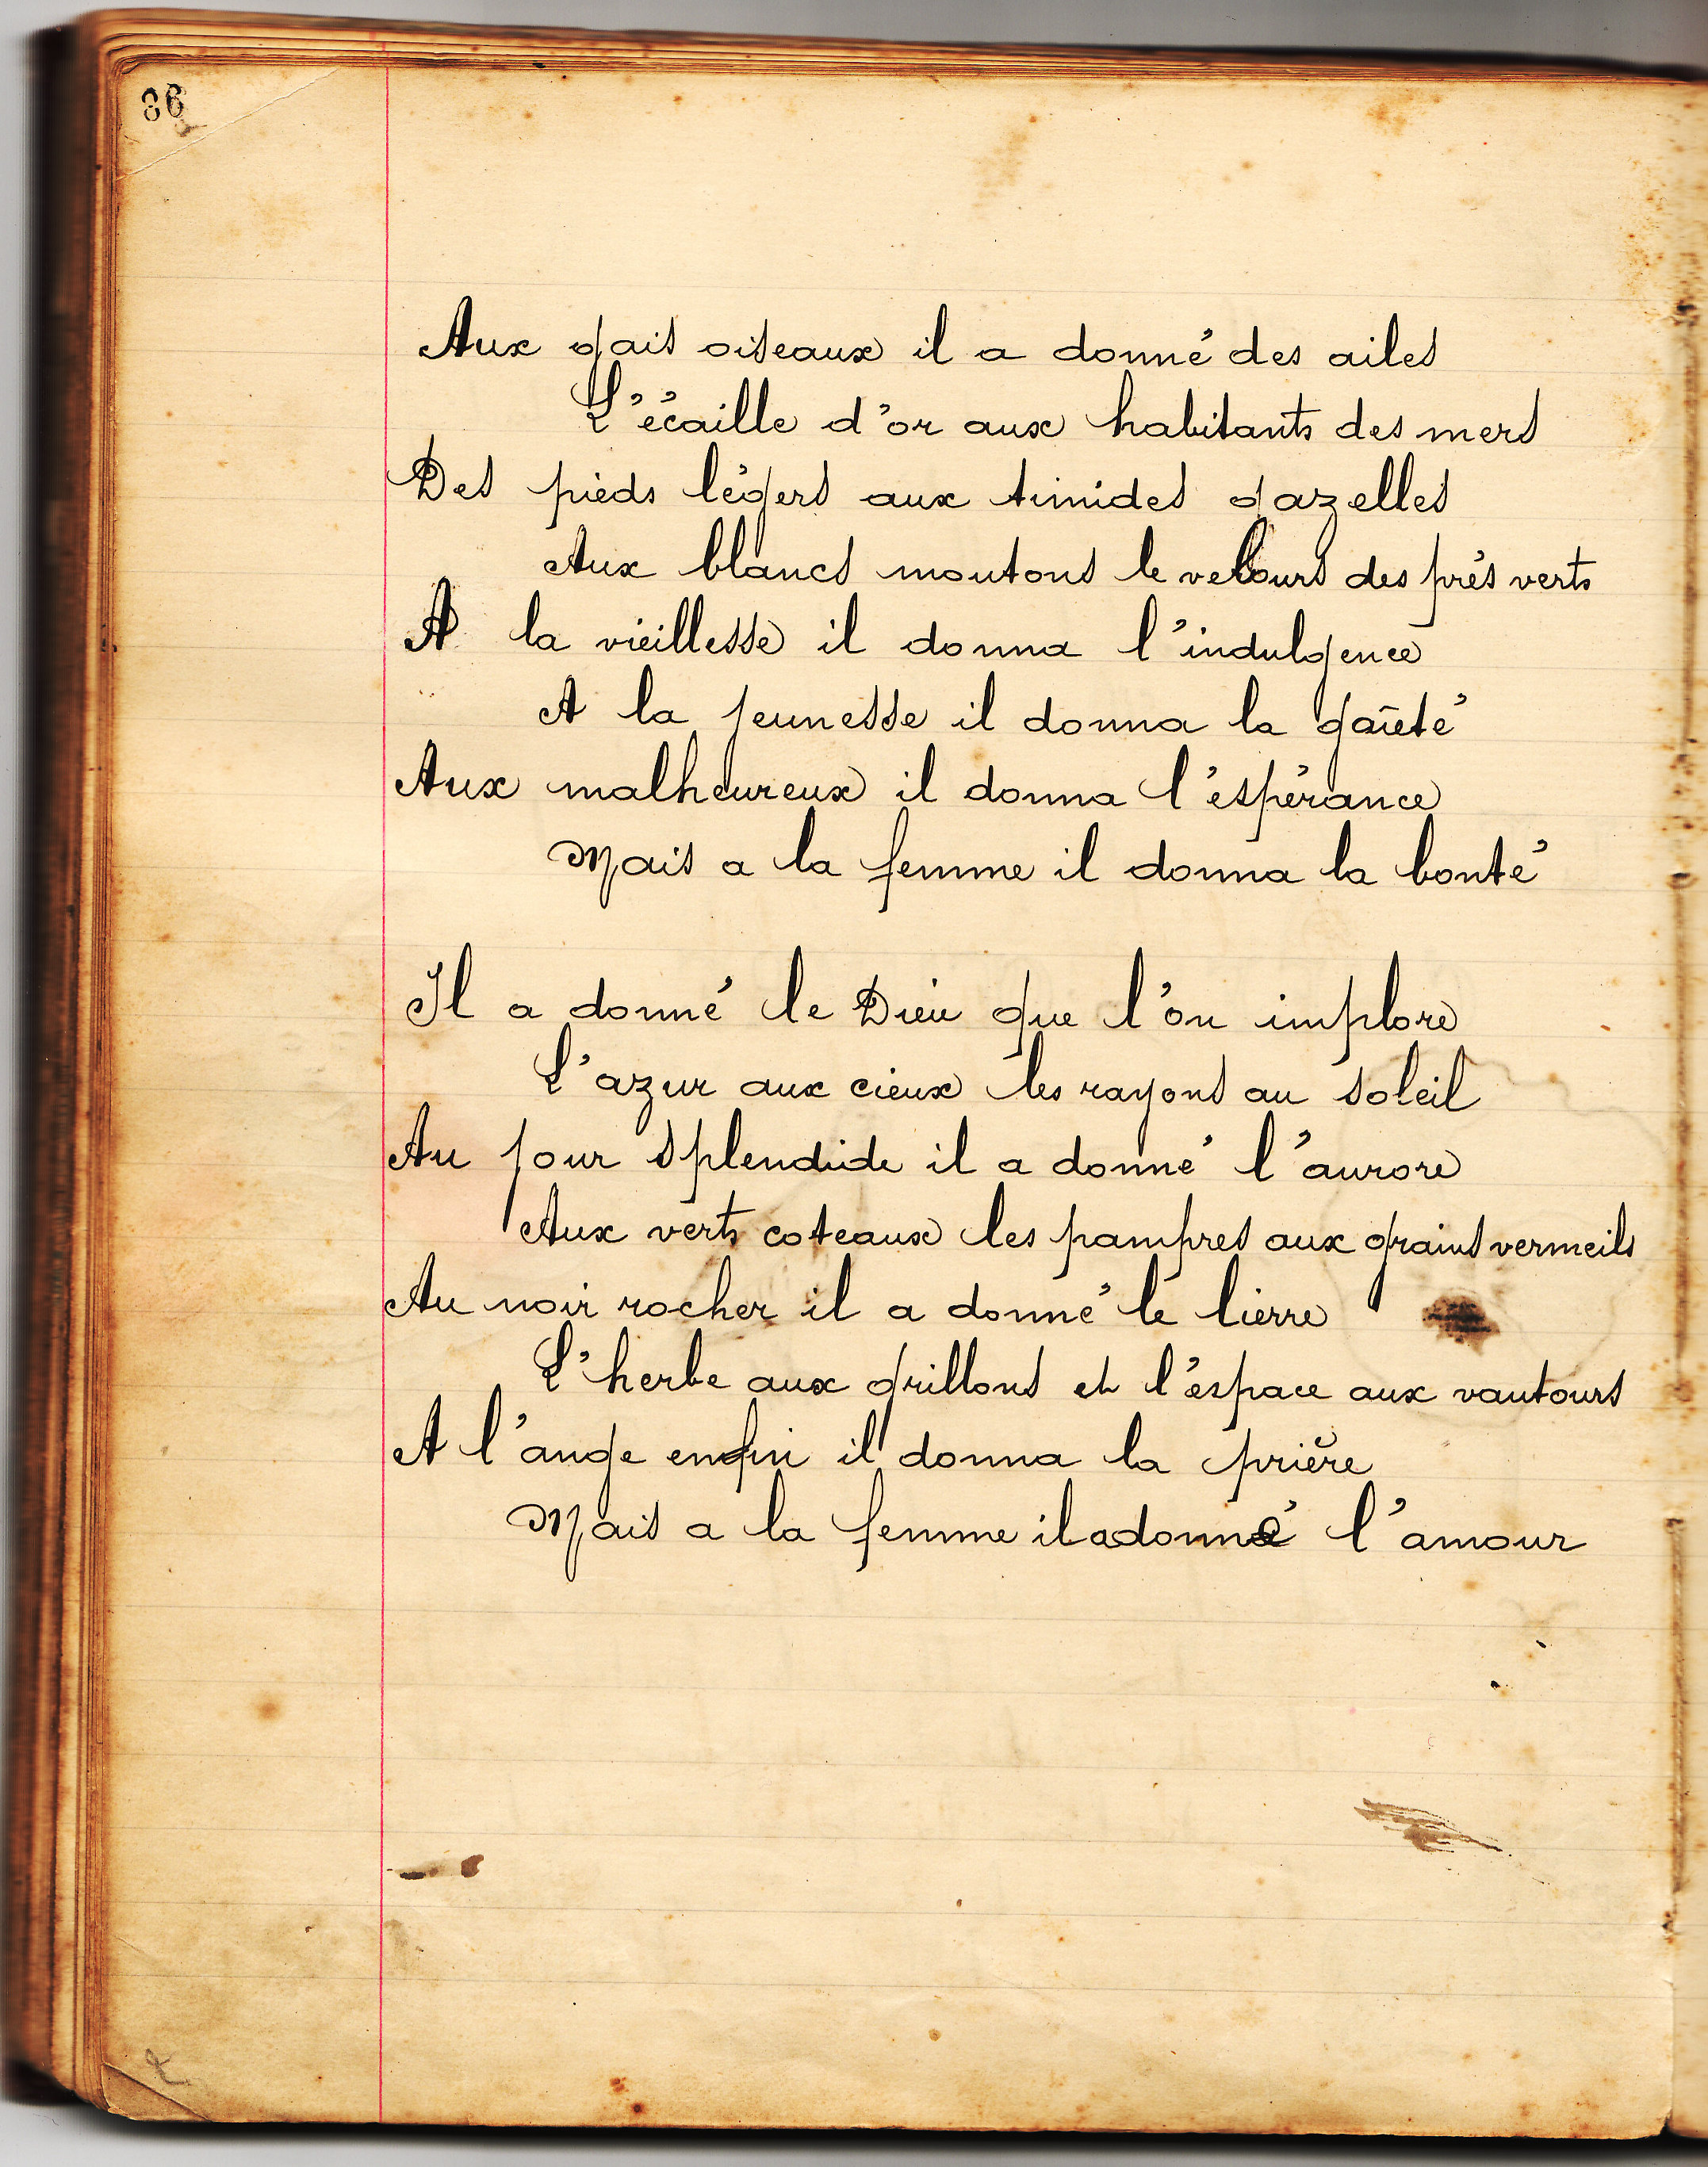 86
Aux gais oiseaux il a donné des ailes
L'écaille d'or aux habitants des mers
Des pieds légers aux timides gazelles
Aux blancs moutons le velours des prés verts
A la vieillesse il donna l'indulgence
A la jeunesse il donna la gaîeté
Aux malheureux il donna l'éspérance
Mais a la femme il donna la bonté
Il a donné le Dieu que l'on implore
L'azur aux cieux les rayons au soleil
Au jour splendide il a donné l'aurore
Aux verts coteaux les pampres aux grains vermeils
Au noir rocher il a donné le lierre
L'herbe aux grillons et l'éspace aux vautours
A l'ange enfin il donna la prière
Mais a la femme il a donné l'amour